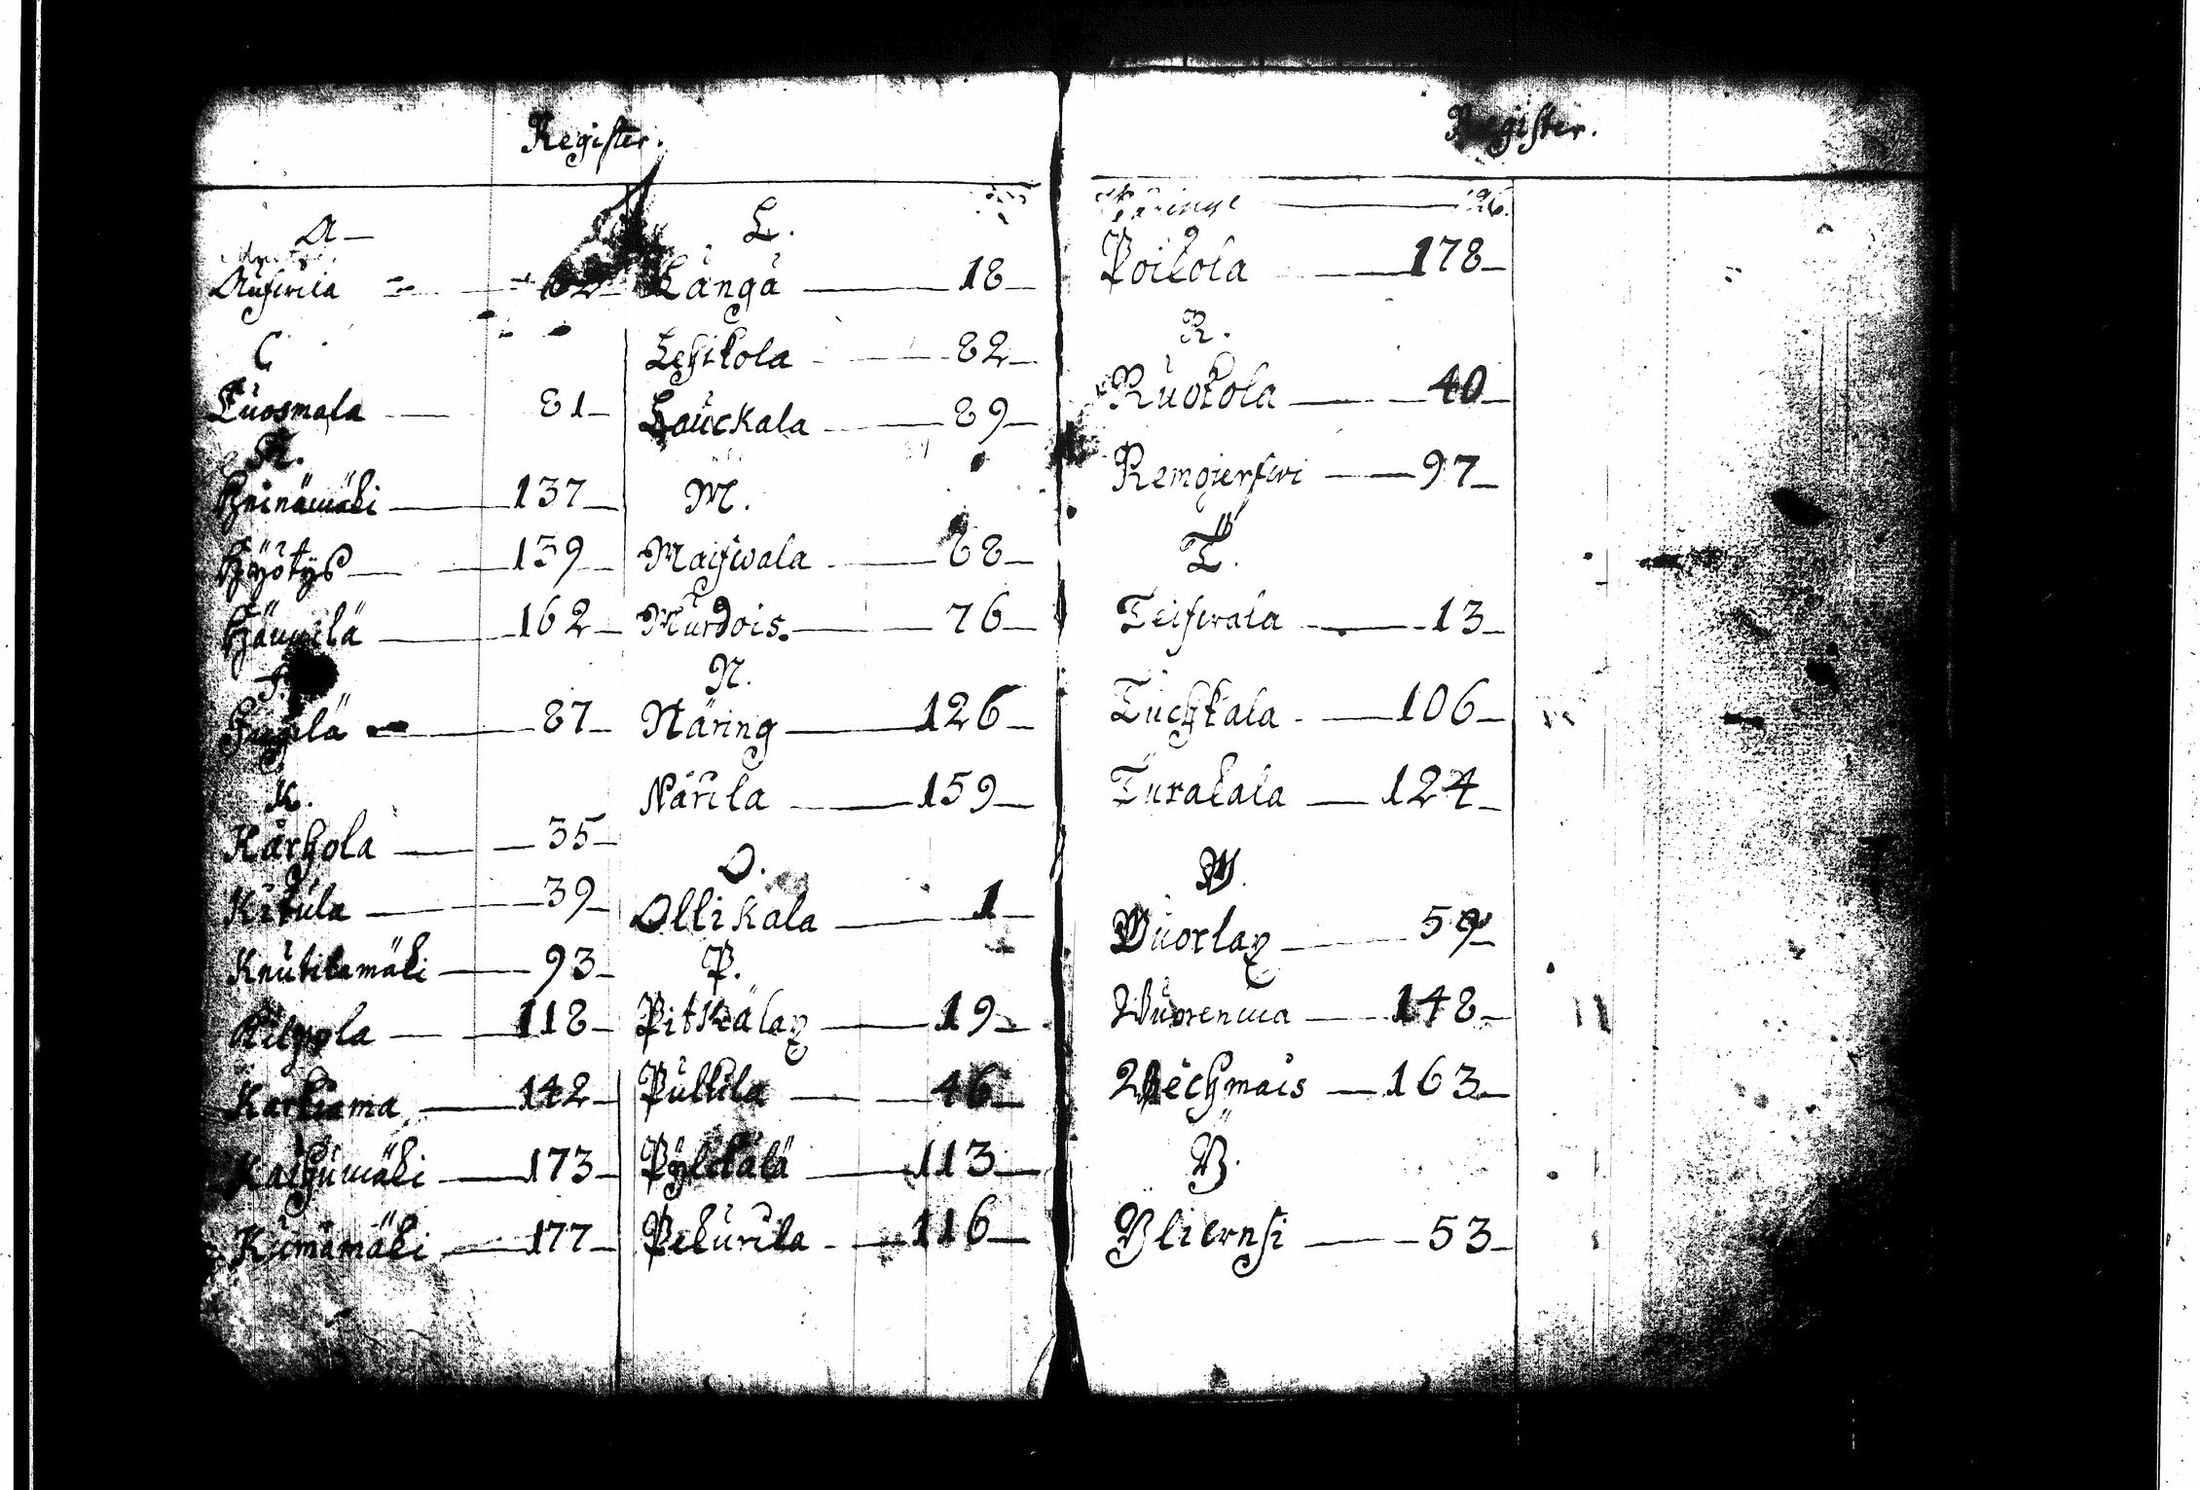 Register.
A
C
Luosmala 81
H.
Heinämäki 137
Hyötys 139
162
87
K.
Karhola 35
Kitula 39
Knutilamäki 93
Kilpola 118
142
Kaihumäki 173
177
L.
Långå 18
Lehikola 82
Lauckala 89
M.
Maiswala 88
Murdois. 76
N.
Näring 126
Närila 159
O.
Ollikala 1
P.
Pitkälax 19
Pullila 46
Pylckälä 113
Pekurila 116
Register.
Poikola 178
R.
Ruokola 40
Remojerfwi 97
T.
Teiswala 13
Tuchkala 106
Turakala 124
W.
Wuorlax 59
Wuorenma 148
Wechmais 163
Y.
Yliernsi 53